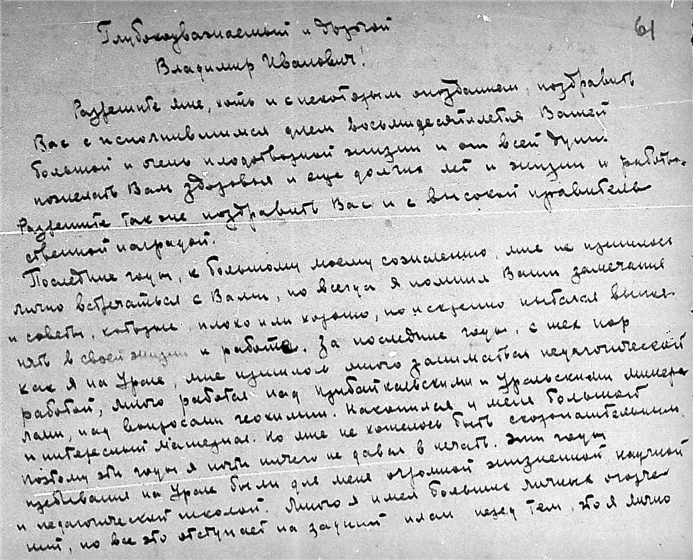 61
Глубокоуважаемый и дорогой
Владимир Иванович!
Разрешите мне, хоть и с некоторым опозданием, поздравить
Вас с исполнившимся днем восьмидесятилетия Вашей
большой и очень плодотворной жизни и от всей души
пожелать Вам здоровья и еще долгих лет и жизни и работы.
Разрешите также поздравить Вас и с высокой правитель
ственной наградой.
Последние годы, к большому моему сожалению, мне не пришлось
лично встречаться с Вами, но всегда я помнил Ваши замечания
и советы, которые плохо или хорошо, но искренно пытался выпол-
нять в своей жизни и работе. За последние годы, с тех пор
как я на Урале, мне пришлось много заниматься педагогической
работой, много работал над прибайкальскими и Уральскими минера
лами, над вопросами геохимии. Накопился у меня большой
и интересный материал. Но мне не хотелось быть скоропалительным,
поэтому эти годы я почти ничего не давал в печать. Эти годы
пребывания на Урале были для меня огромной жизненной научной
и педагогической школой. Много я имел больших личных огорче
ний, но все это отступает на задний план перед тем, что я лично